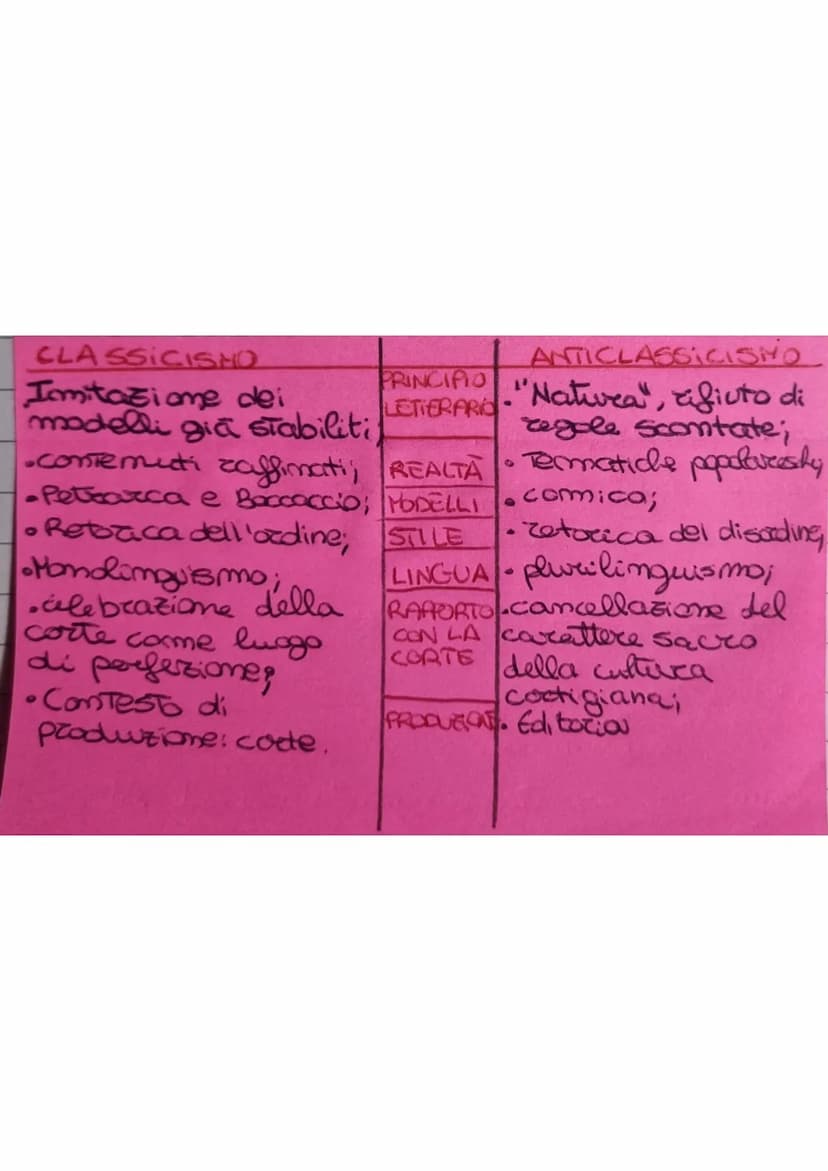 CLASSICISMO
Imitazione dei
modelli già stabiliti;
• contenuti raffinati;
• Petrarca e Boccaccio;
• Retorica dell'ordine;
• Monolinguismo;
• celebrazione della
corte come luogo
di perfezione;
• Contesto di
produzione: corte.
PRINCIPIO
LETTERARIO
REALTÀ
MODELLI
STILE
LINGUA
RAPPORTO
CON LA
CORTE
PRODUZIONE
ANTICLASSICISMO
• "Natura", rifiuto di
regole scontate;
• Tematiche popolaresche;
• comico;
• retorica del disordine;
• plurilinguismo;
• cancellazione del
carattere sacro
della cultura
cortigiana;
• Editoria